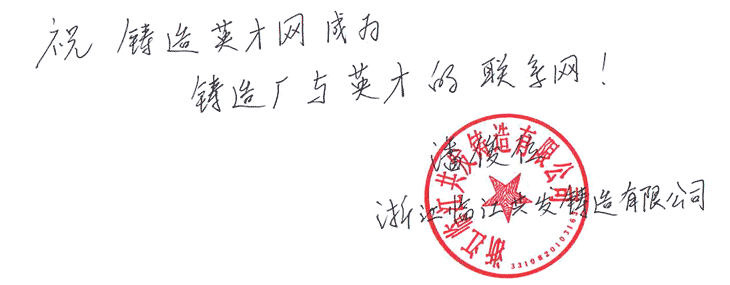 祝 铸造英才网成为
铸造厂与英才的联系网！
潘俊
浙江临江共发铸造有限公司
浙江临江共发铸造有限公司
331082010316